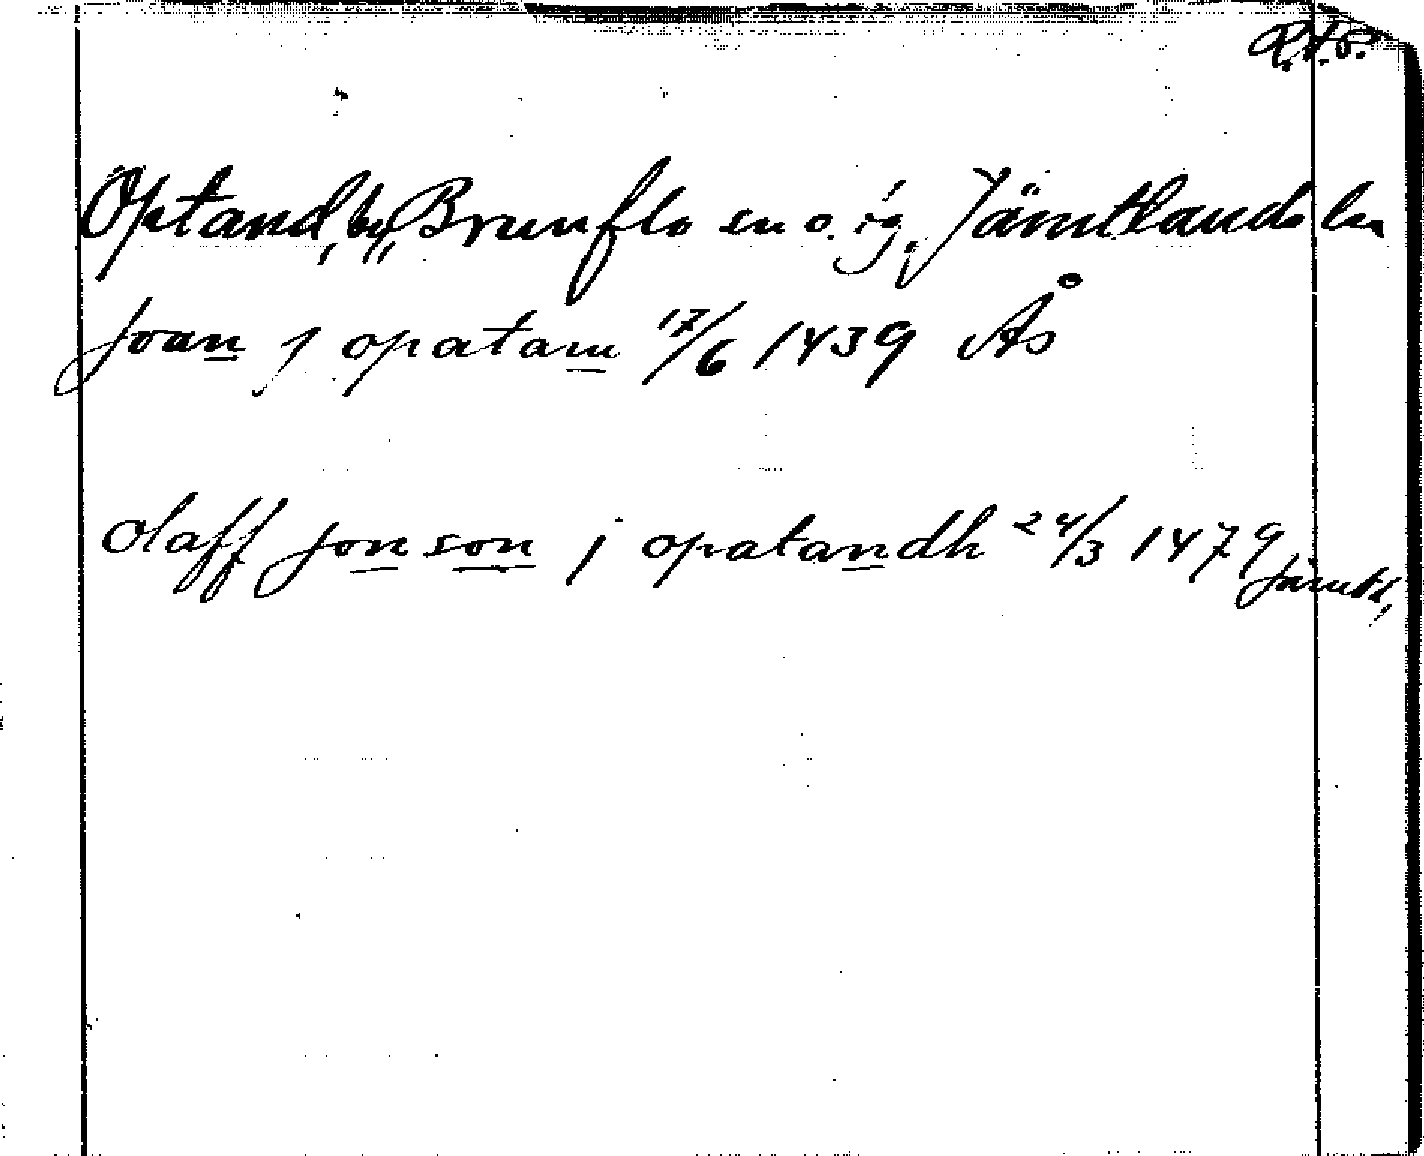 P.t.o.
Optand, by, Brunflo sn o. tg, Jämtlands län
Joan j opatam 17/6 1439 Ås
Olaff jonson j opatandh 24/3 1479 Jämtl,